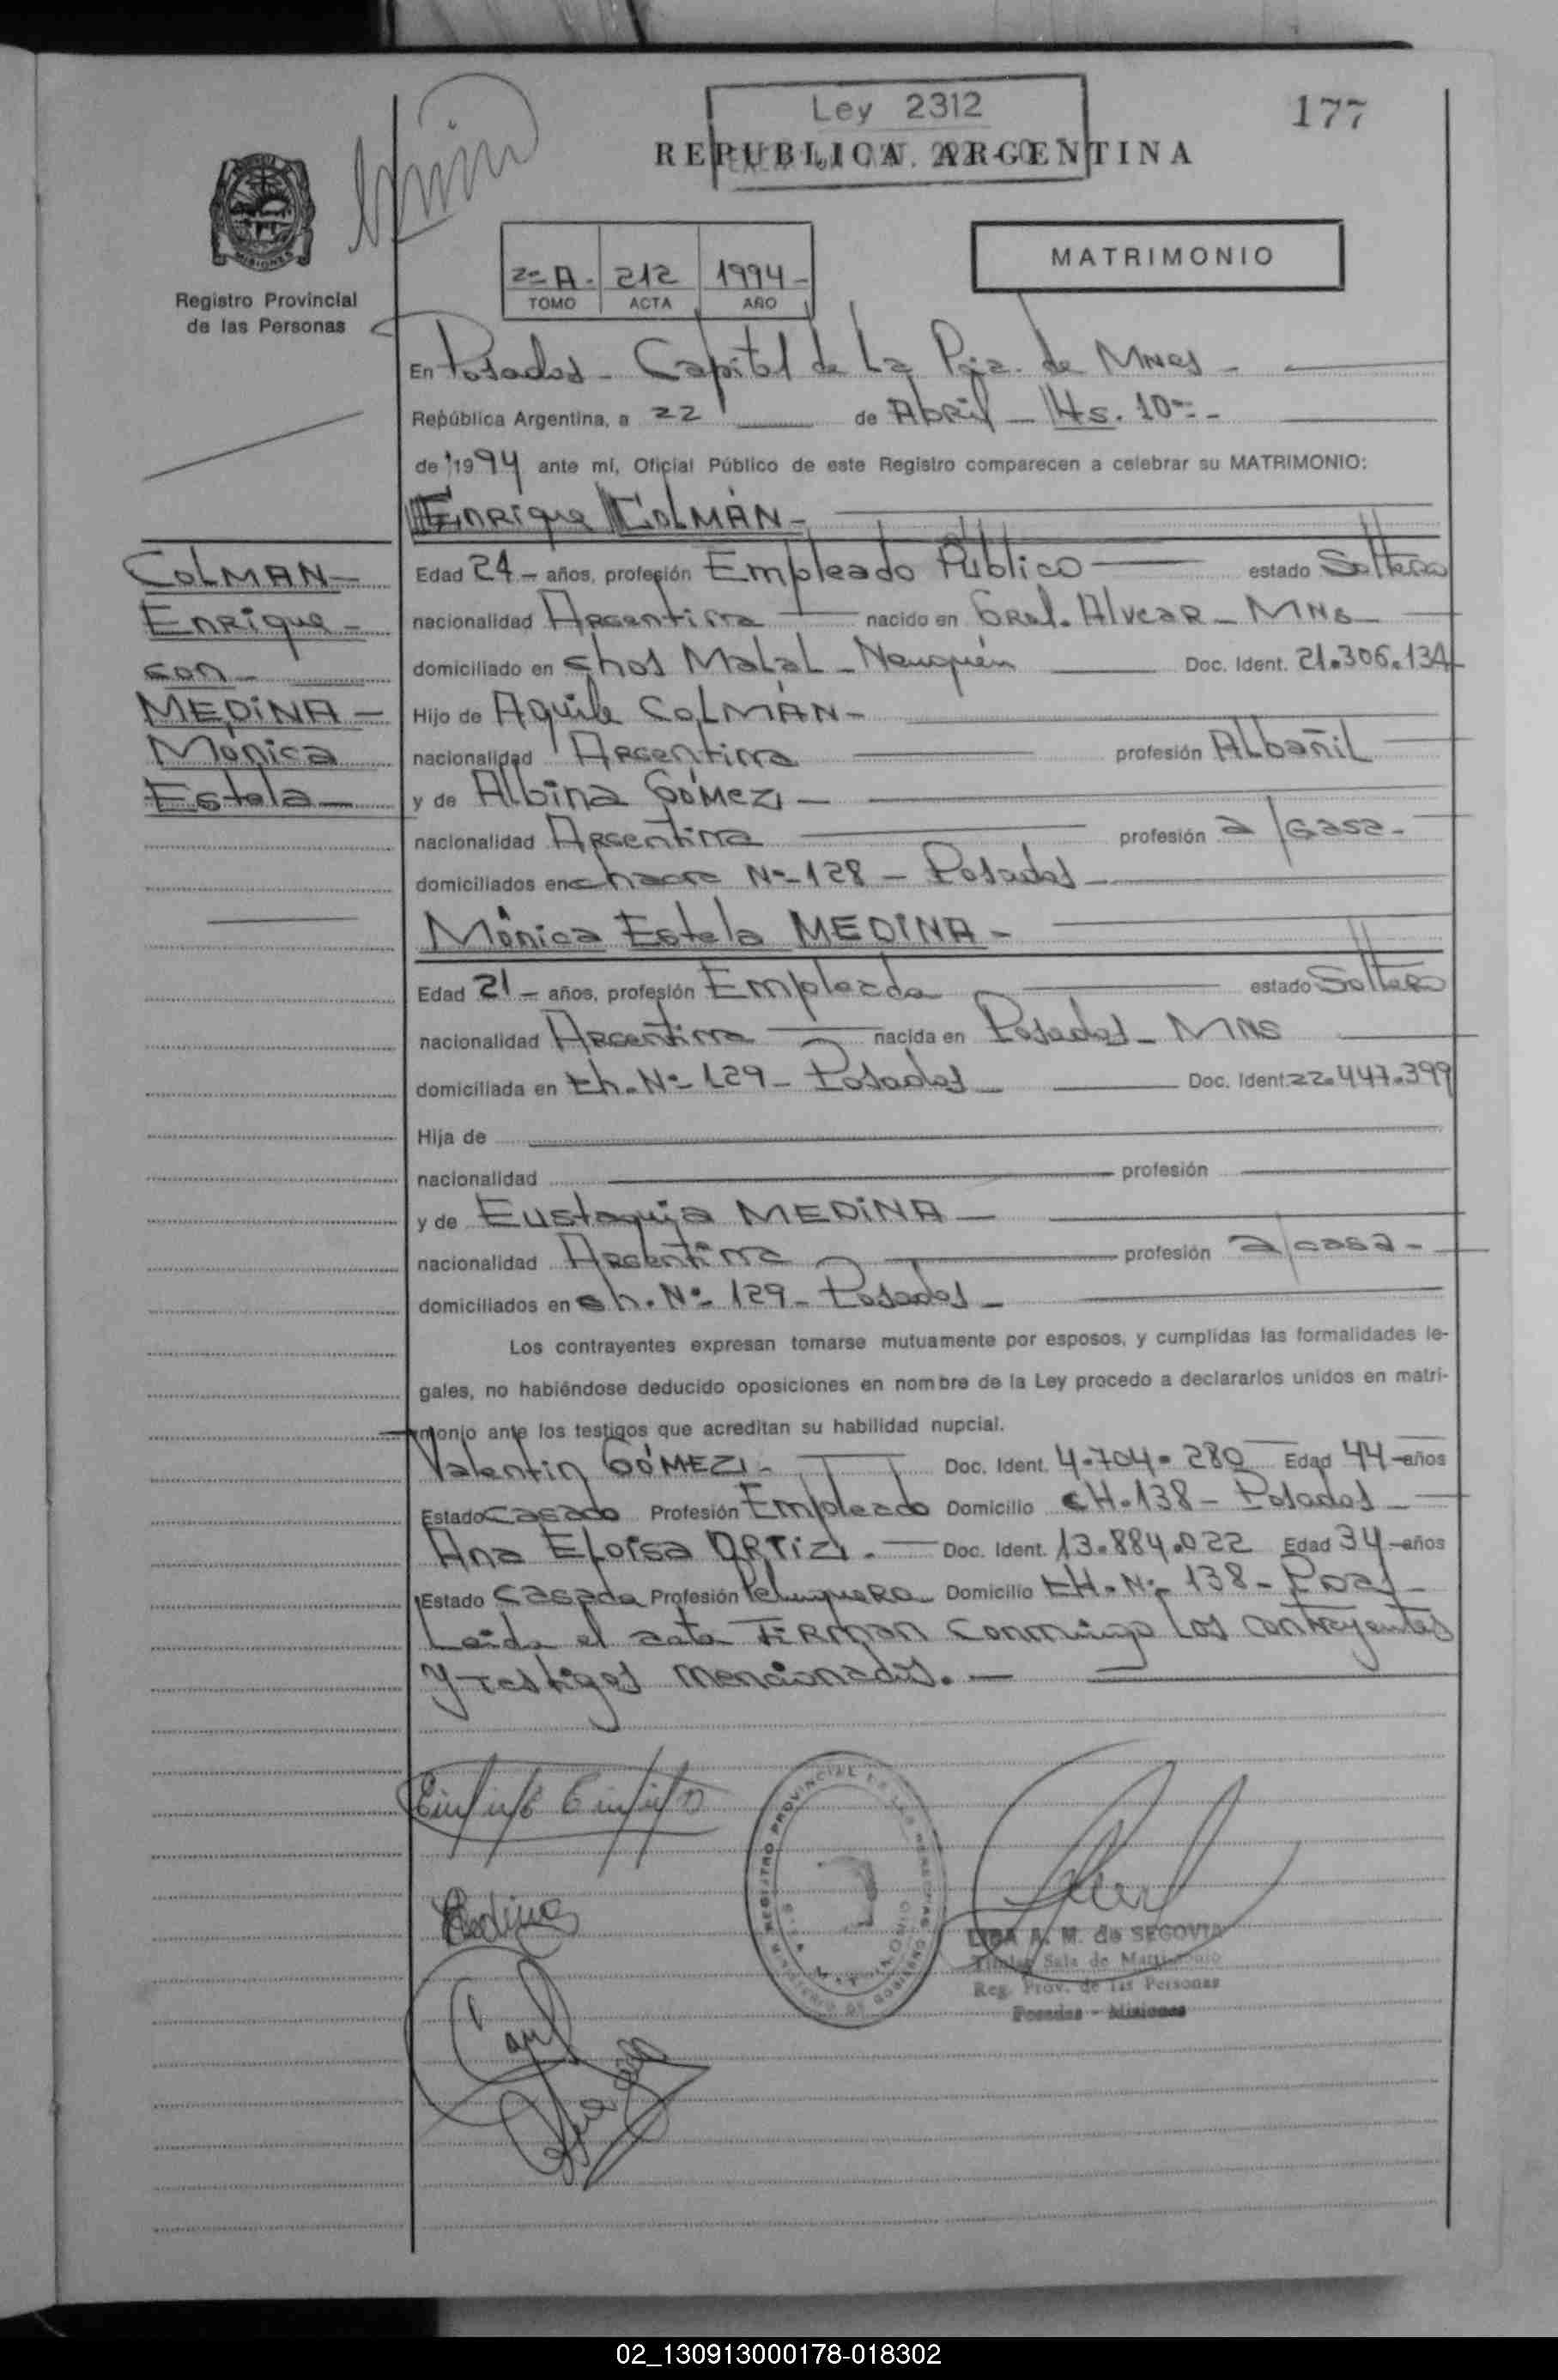 Ley 2312
177
REPUBLICA ARGENTINA
MISIONES
Registro Provincial
de las Personas
2º A - 212 1994 -
TOMO ACTA AÑO
MATRIMONIO
En Posadas - Capital de La Pcia. de Mnes -
República Argentina, a 22 de Abril - Hs. 10
de 1994 ante mí, Oficial Público de este Registro comparecen a celebrar su MATRIMONIO:
Enrique COLMÁN -
COLMAN -
Enrique -
con -
MEDINA -
Mónica
Estela -
Edad 24 - años, profesión Empleado Público estado Soltero
nacionalidad Argentina nacido en Gral. Alvear - MNS -
domiciliado en Chos Malal - Neuquén Doc. Ident. 21.306.134
Hijo de Aquile COLMÁN -
nacionalidad Argentina profesión Albañil
y de Albina GÓMEZ -
nacionalidad Argentina profesión a/casa -
domiciliados en chacra Nº 128 - Posadas -
Mónica Estela MEDINA -
Edad 21 - años, profesión Empleada estado Soltera
nacionalidad Argentina nacida en Posadas - MNS
domiciliada en Ch. Nº 129 - Posadas - Doc. Ident. 22.447.399
Hija de
nacionalidad profesión
y de Eustaquia MEDINA -
nacionalidad Argentina profesión a/casa -
domiciliados en ch. Nº 129 - Posadas -
Los contrayentes expresan tomarse mutuamente por esposos, y cumplidas las formalidades le-
gales, no habiéndose deducido oposiciones en nombre de la Ley procedo a declararlos unidos en matri-
monio ante los testigos que acreditan su habilidad nupcial.
Valentin GÓMEZ - Doc. Ident. 4.704.280 Edad 44 - años
Estado Casado Profesión Empleado Domicilio CH. 138 - Posadas -
Ana Eloisa ORTIZ - Doc. Ident. 13.884.022 Edad 34 - años
Estado Casada Profesión Peluquera Domicilio CH. Nº 138 - Pdas -
Leida el acta Firman Conmigo Los contrayentes
y testigos mencionados. -
REGISTRO PROVINCIAL DE LAS PERSONAS
MINISTERIO DE GOBIERNO
Medina
A. M. de SEGOVIA
Titular Sala de Matrimonio
Reg. Prov. de las Personas
Posadas - Misiones
02_130913000178-018302